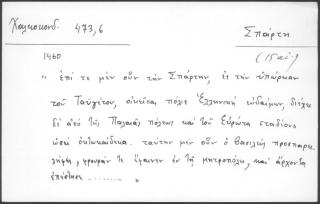 Χαλκοκονδ. 473,6
Σπάρτη
1460
" ἐπί τε μὲν οὖν τὴν Σπάρτην, ἐς τὴν ὑπώρειαν
τοῦ Ταϋγέτου, πόλις Ἑλληνικὴ εὐδαίμων, διέχει
δὲ ἀπὸ τῆς Παλαιᾶς πόλεως καὶ τοῦ Εὐρώτα σταδίους
ὡσεὶ ὀκτωκαίδεκα. ταύτην μὲν οὖν ὁ βασιλεὺς
φρουρὰν τε ἐν τῇ μητροπόλει, καὶ ἄρχοντα
ἐπέστησε ........ "